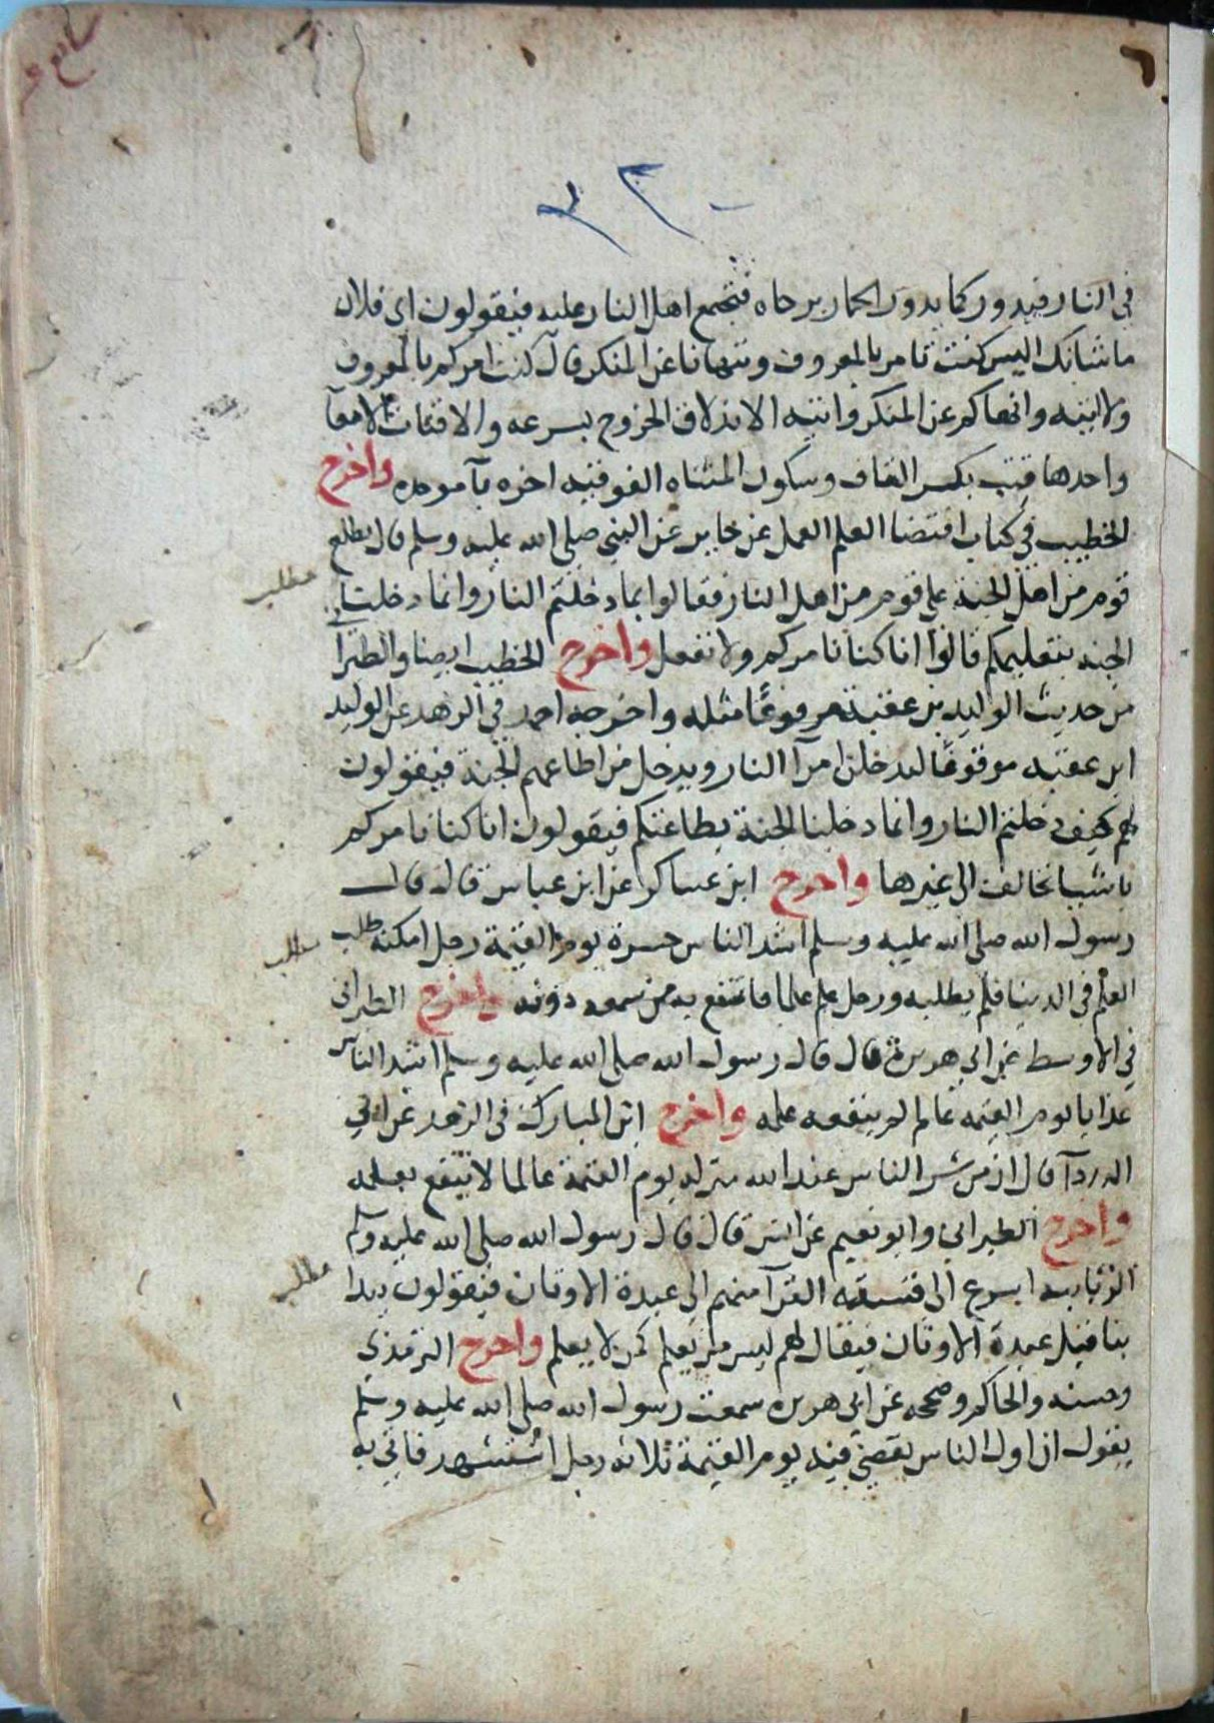 في النار فيدور كما يدور الحمار برحاه فتجتمع اهل النار عليه فيقولون اى فلان
ما شانك اليس كنت تامر بالمعروف وتنهانا عن المنكر قال كنت امركم بالمعروف
ولا اتيه وانهاكم عن المنكر واتيه الاندلاق الخروج بسرعه والاقتاب الامعآ
واحدها قتب بكسر القاف وسكون المثناه الفوقيه اخره بآ موحده واخرج
الخطيب في كتاب اقتضا العلم العمل عن جابر عن النبي صلى الله عليه وسلم قال يطلع
قوم من اهل الجنة على قوم من اهل النار فقالوا بما دخلتم النار وانما دخلنا
الجنه بتعليمكم قالوا انا كنا نامركم ولا نفعل واخرج الخطيب ايضا والطبرا
من حديث الوليد بن عقبة مرفوعًا مثله واخرجه احمد في الزهد عن الوليد
ابن عقبه موقوفًا ليدخلن امرآ النار ويدخل من اطاعهم الجنة فيقولون
لهم كيف دخلتم النار وانما دخلنا الجنة بطاعتكم فيقولون انا كنا نامركم
باشيا نخالف الى غيرها واخرج ابن عساكر عن ابن عباس قال قال
رسول الله صلى الله عليه وسلم اشد الناس حسرة يوم القيمة رجل امكنه طلب
العلم في الدنيا فلم يطلبه ورجل علم علما فانتفع به من سمعه دونه واخرج الطبرانى
في الاوسط عن ابي هريرة قال قال رسول الله صلى الله عليه وسلم اشد الناس
عذابا يوم القيمه عالم لم ينفعه علمه واخرج ابن المبارك في الزهد عن ابي
الدردآ قال ان من شر الناس عند الله منزله يوم القيمة عالما لا ينتفع بعلمه
واخرج الطبراني وابو نعيم عن انس قال قال رسول الله صلى الله عليه وسلم
الزبانيه اسرع الى فسقه القرآ منهم الى عبدة الاوثان فيقولون يبدا
بنا قبل عبدة الاوثان فيقال لهم ليس من يعلم كمن لا يعلم واخرج الترمذي
وحسنه والحاكم وصححه عن ابي هريره سمعت رسول الله صلى الله عليه وسلم
يقول ان اول الناس يقضى فيه يوم القيمة ثلاثه رجل استشهد فاتي به
مطلب
مطلب
مطلب